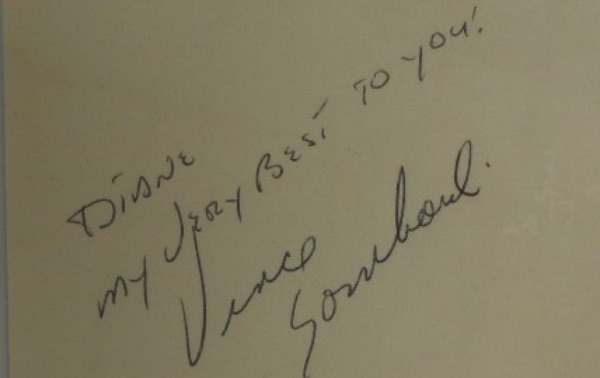 DIANE
MY VERY BEST TO YOU!
Vince
Lombardi